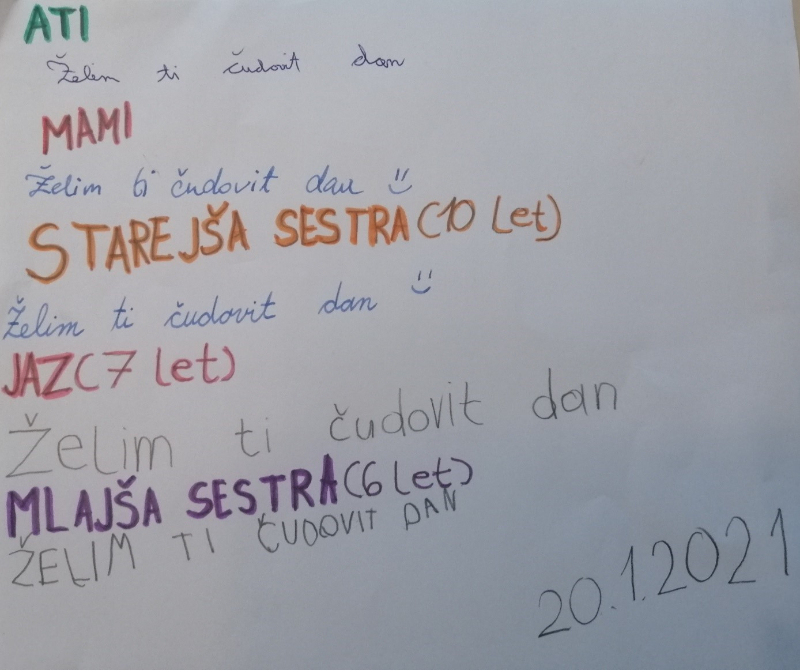 ATI
Želim ti čudovit dan
MAMI
Želim ti čudovit dan
STAREJŠA SESTRA (10 let)
Želim ti čudovit dan
JAZ (7 let)
Želim ti čudovit dan
MLAJŠA SESTRA (6 let)
ŽELIM TI ČUDOVIT DAN
20.1.2021